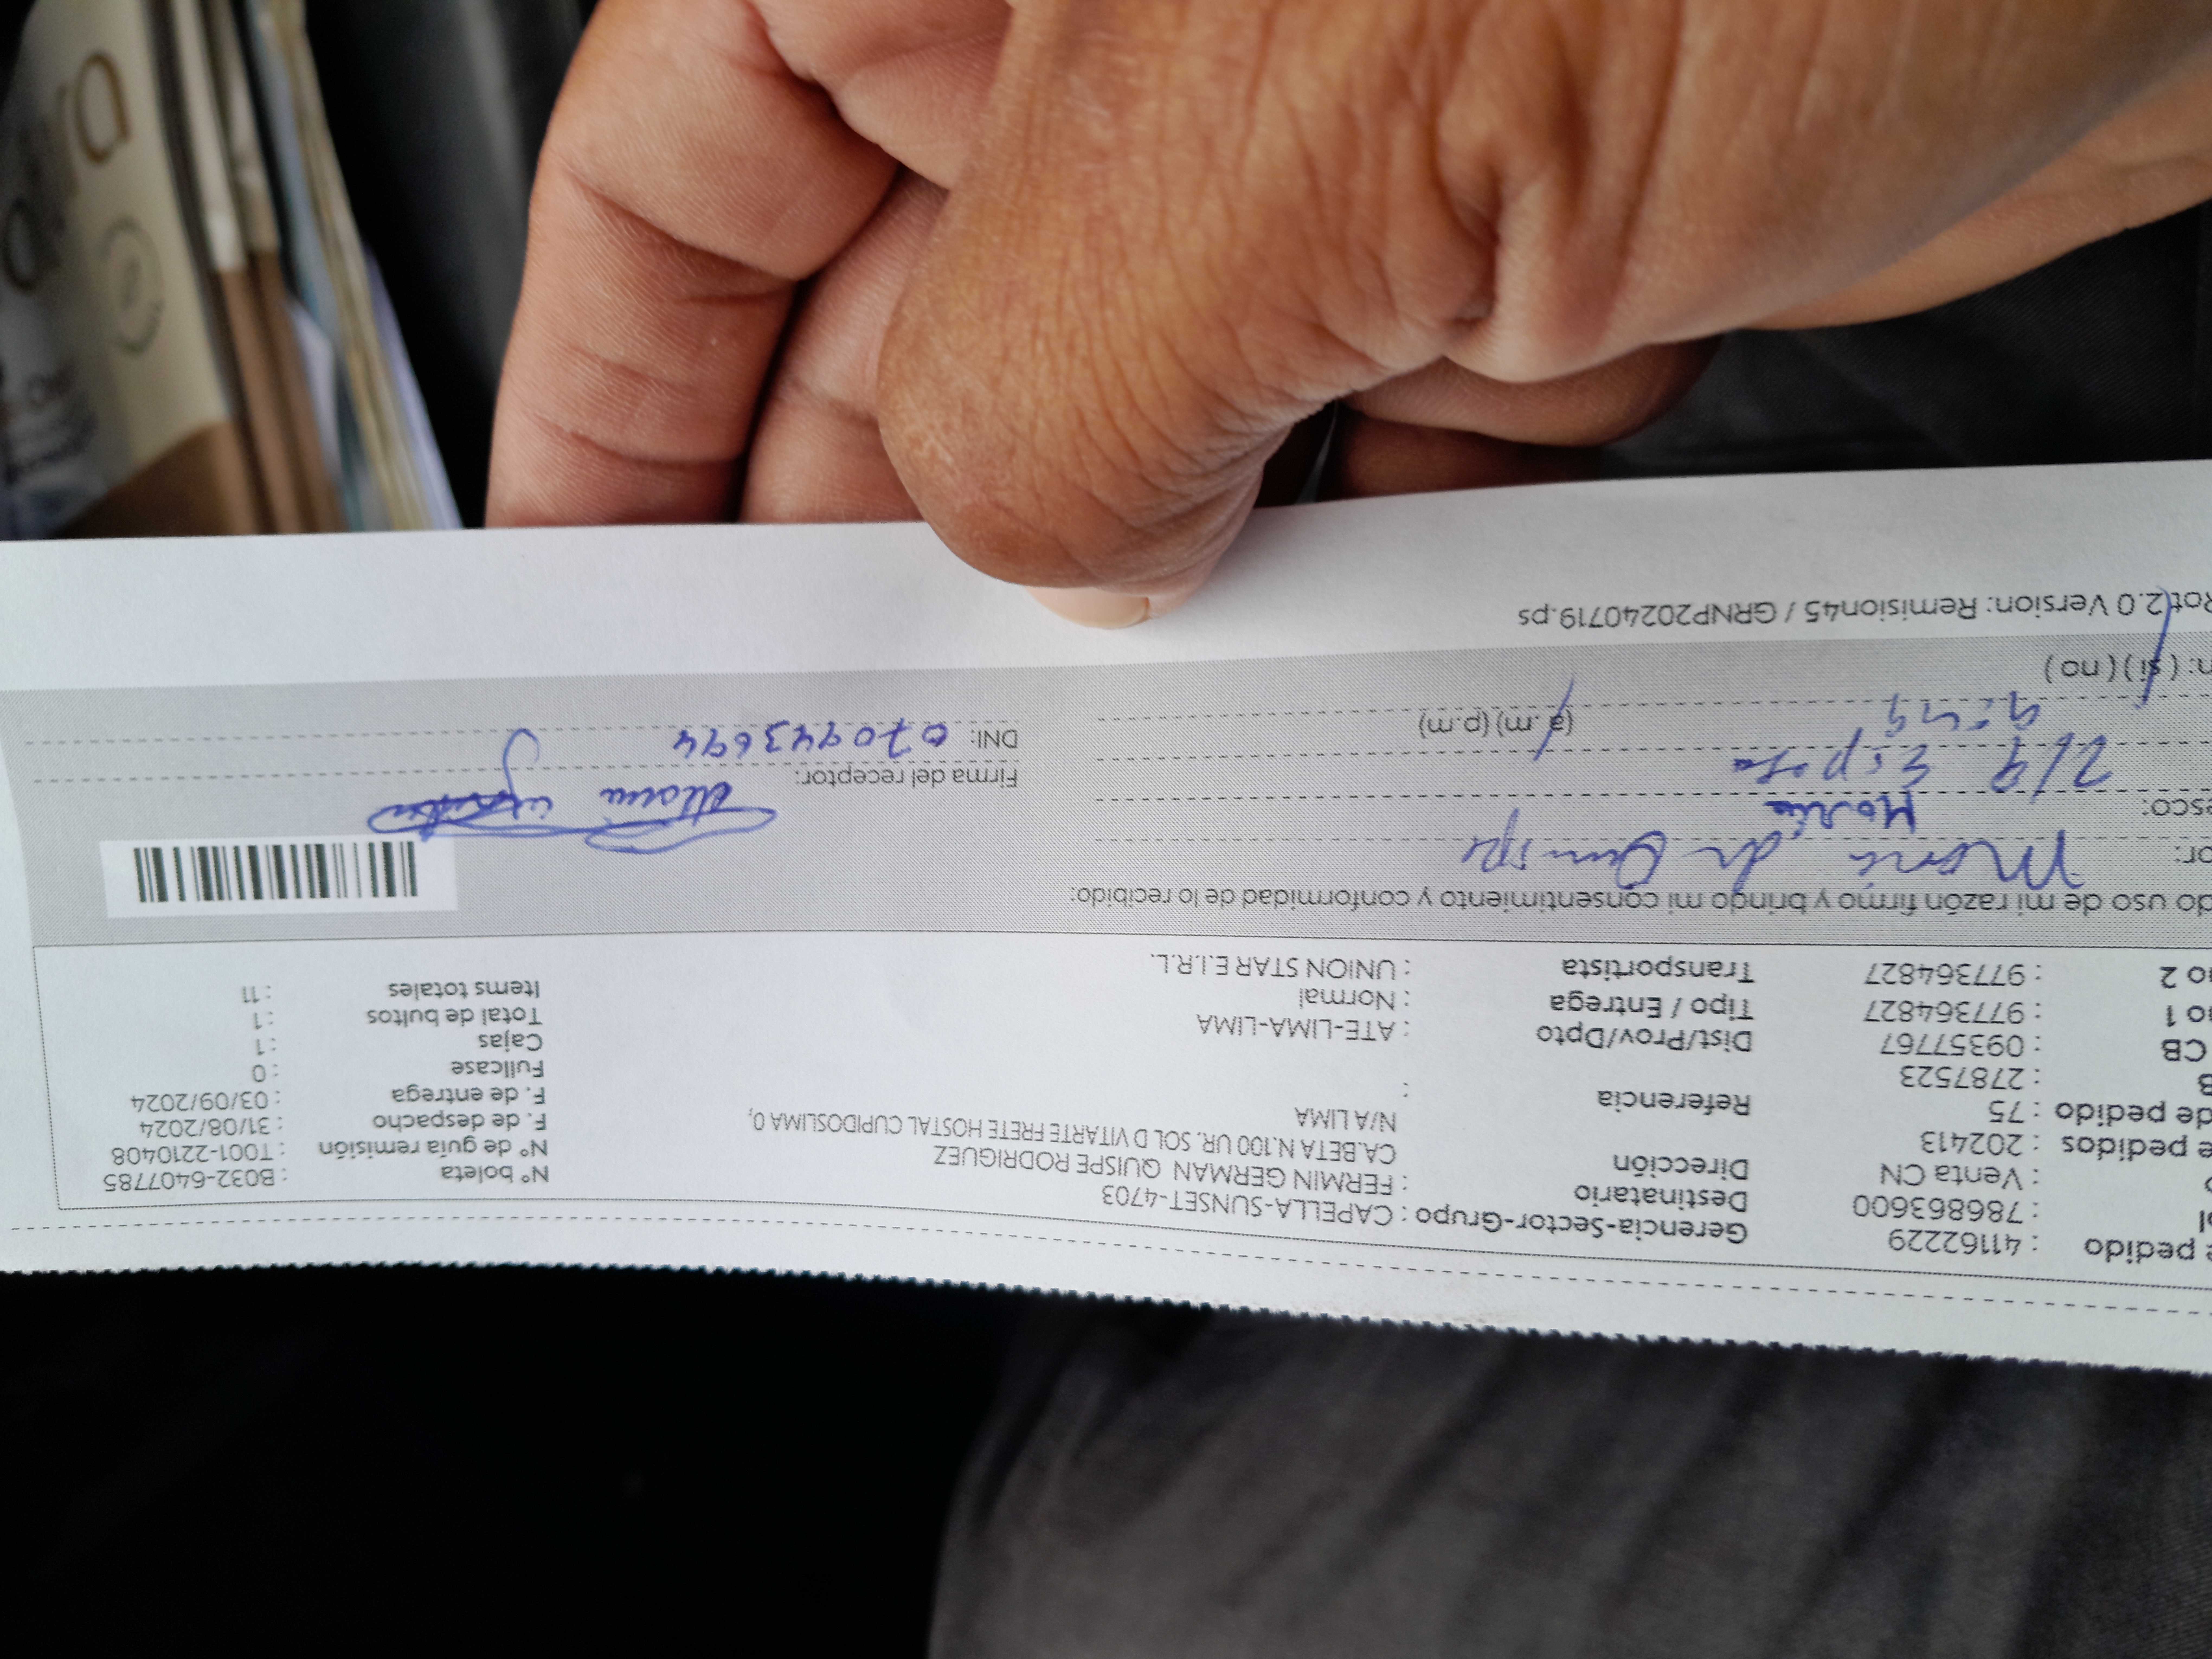 e pedido : 41162229 Gerencia-Sector-Grupo : CAPELLA-SUNSET-4703
ol : 786863600 Destinatario : FERMIN GERMAN QUISPE RODRIGUEZ Nº boleta : B032-6407785
o : Venta CN Dirección CA.BETA N.100 UR. SOL D VITARTE FRETE HOSTAL CUPIDOSLIMA 0, Nº de guía remisión : T001-2210408
e pedidos : 202413 N/A LIMA F. de despacho : 31/08/2024
de pedido : 75 Referencia : F. de entrega : 03/09/2024
B : 2787523 Fullcase : 0
CB : 09357767 Dist/Prov/Dpto : ATE-LIMA-LIMA Cajas : 1
no 1 : 977364827 Tipo / Entrega : Normal Total de bultos : 1
no 2 : 977364827 Transportista : UNION STAR E.I.R.L. Items totales : 11
do uso de mi razón firmo y bringo mi consentimiento y conformidad de lo recibido:
or: Maria de Quispe
esco: María
Firma del receptor: Maria
2/9 Esposa
DNI: 07094 43694
9:49 (a.m) (p.m)
n: ( si ) ( no )
Rot 2.0 Version: Remision45 / GRNP20240719.ps